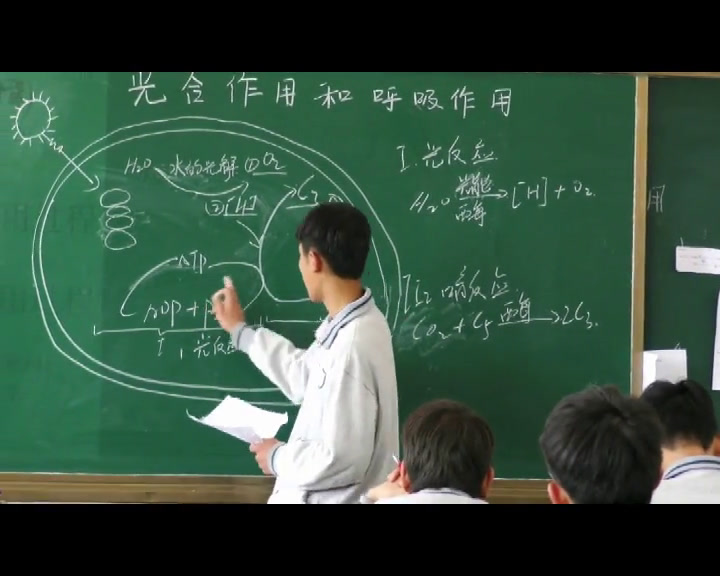 光合作用和呼吸作用
H₂O 水的光解 ① O₂
② [H]
C₃
ATP
ADP + P
I 1 光反应
I. 光反应
H₂O 光能 酶 → [H] + O₂
I2 暗反应
CO₂ + C₅ 酶 → 2C₃.
用